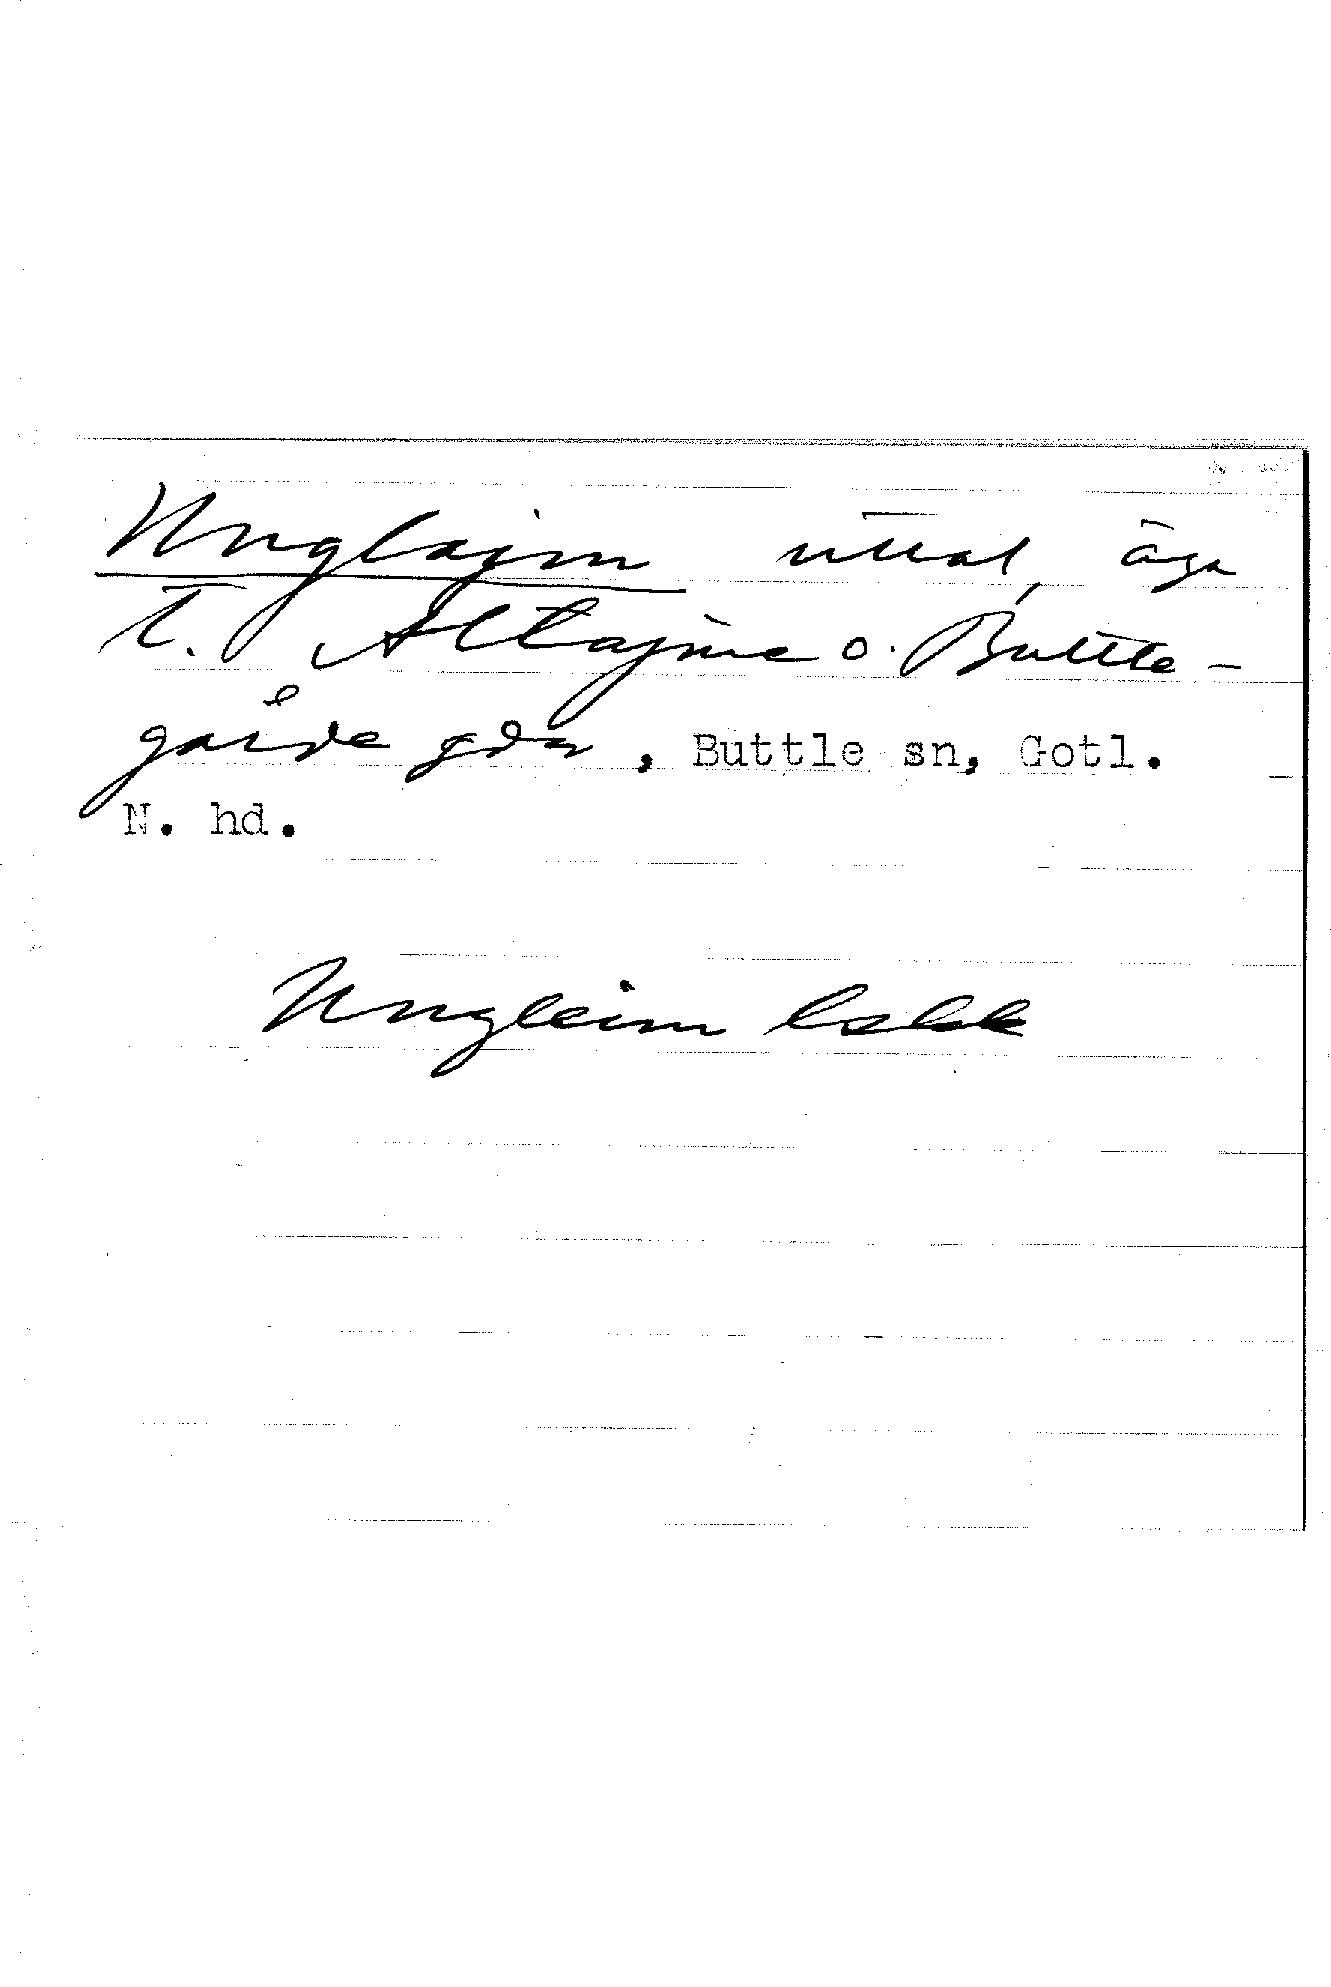 Unglajm uttal, äga
t. Altajme o. Buttle-
gårde gdr, Buttle sn, Gotl.
N. hd.
Ungleim lokk